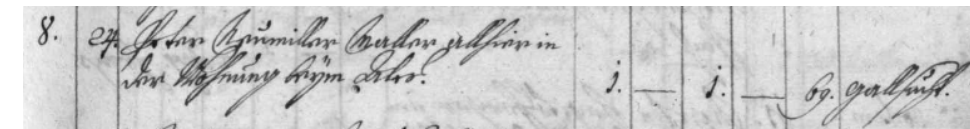 8. 24. Peter Neumiller Maller allhier in
der Wohnung beÿm 1. — 1. — 69. Gallsucht.